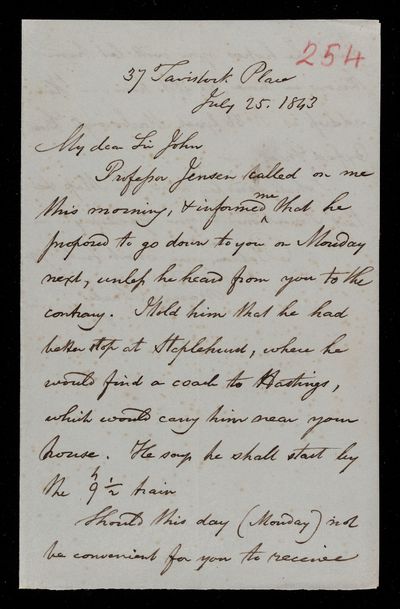 254
37 Tavistock Place
July 25. 1843
My dear Sir John
Professor Jensen called on me
this morning, & informed me that he
proposed to go down to you on Monday
next, unless he heard from you to the
contrary. I told him that he had
better stop at Staplehurst, where he
would find a coach to Hastings,
which would carry him near your
house. He says he shall start by
the 9 h ½ train
Should this day (Monday) not
be convenient for you to receive